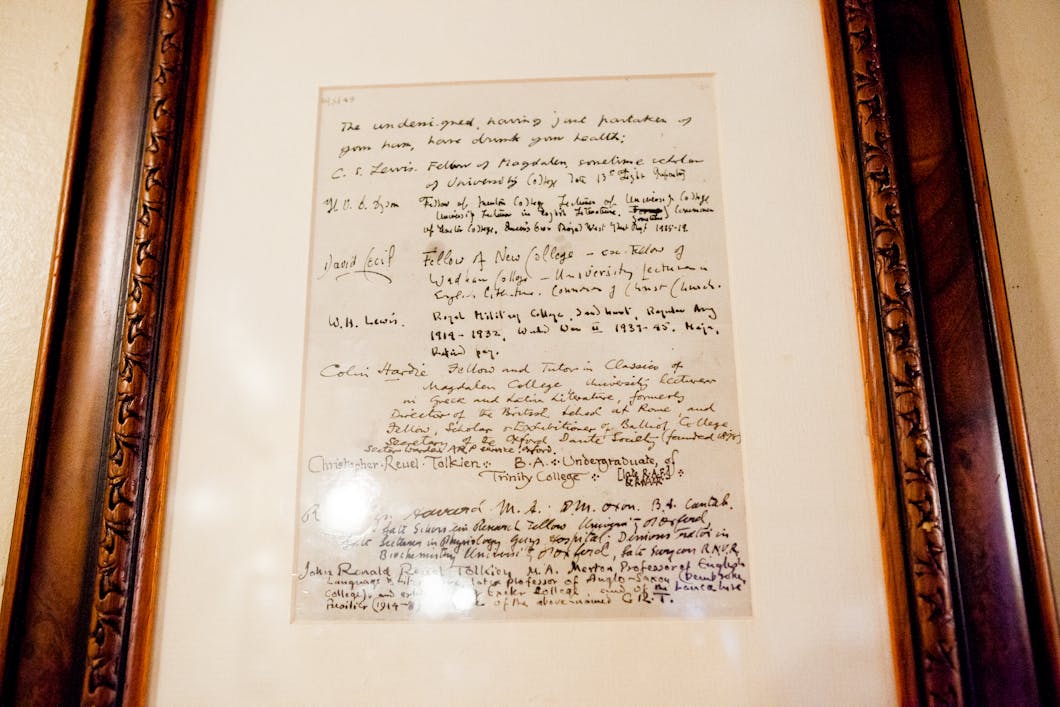 The undersigned, having just partaken of
your ham, have drunk your health;
C. S. Lewis. Fellow of Magdalen, sometime scholar
of University College late 13th Light Infantry
H. V. D. Dyson Fellow of Merton College Lecturer of University College
University Lecturer in English Literature. commoner
of College, Queen's Own Royal West Kent Regt
David Cecil Fellow of New College – ex. Fellow of
Wadham College – University Lecturer in
English Literature. Commoner of Christ Church.
W.H. Lewis. Royal Military College, Sandhurst, Regular Army
1914 - 1932, World War II 1939-45. Major,
Retired pay.
Colin Hardie Fellow and Tutor in Classics of
Magdalen College, University lecturer
in Greek and Latin Literature, formerly
Director of the British School at Rome, and
Fellow, Scholar & Exhibitioner of Balliol College
Secretary of the Oxford Dante Society (founded
Sector Warden ARP service, Oxford.
Christopher Reuel Tolkien : B.A : Undergraduate, of
Trinity College :
Havard M.A. : D.M. Oxon. B.A. Cantab.
Late Research Fellow University of Oxford
Late Lecturer in Physiology Guys Hospital. Demonstrator in
Biochemistry University of Oxford, late Surgeon R.N.V.R.
John Ronald Reuel Tolkien M.A. Merton Professor of English
Language & late professor of Anglo-Saxon (Pembroke
College), and Exeter College, and of the Lancashire
Fusilier (1914-8) of the above-named C.R.T.